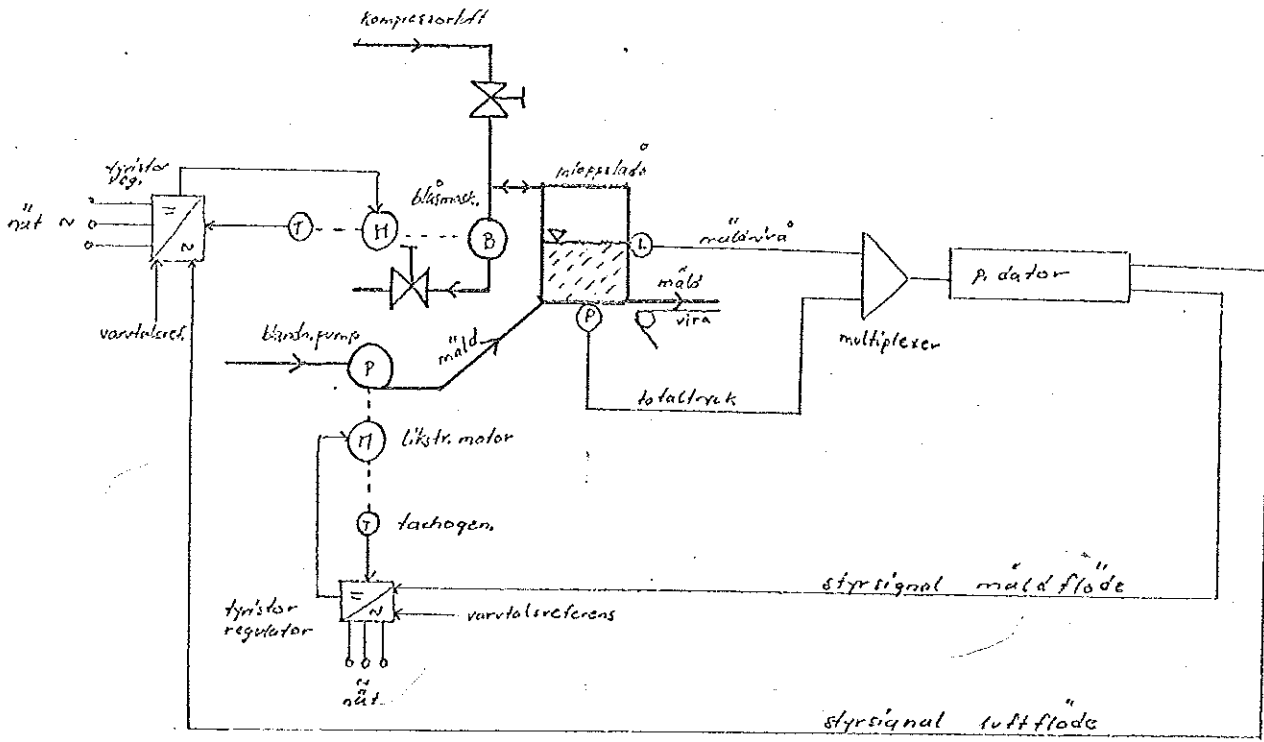 kompressorluft
tyristor
reg.
nät ~
=
~
T
M
blåsmask.
B
inloppslåda
L
mäldnivå
p. dator
multiplexer
mäld
vira
P
varvtalsref.
blandn.pump
P
mäld
totaltryck
M
likstr. motor
T
tachogen.
=
~
tyristor
regulator
varvtalsreferens
nät
styrsignal mäldflöde
styrsignal luftflöde